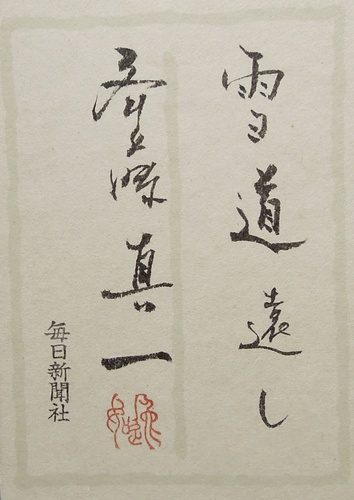 雪道遠し
斎藤真一
毎日新聞社